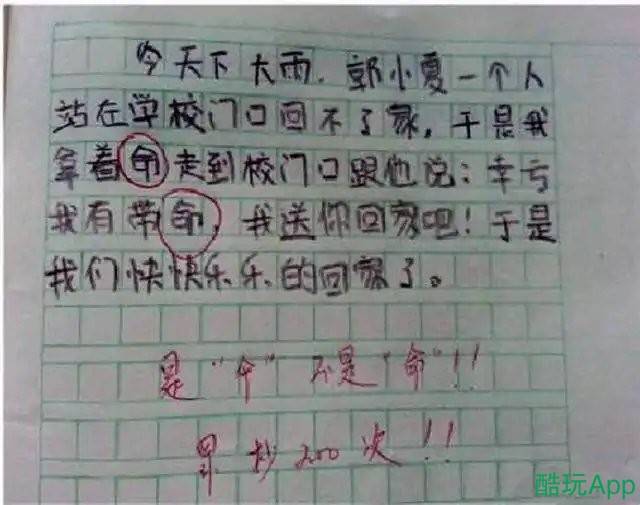 今天下大雨.郭小夏一个人
站在学校门口回不了家,于是我
拿着命走到校门口跟他说:幸亏
我有带命,我送你回家吧!于是
我们快快乐乐的回家了。
是"伞"不是"命"!!
罚抄200次!!
酷玩App